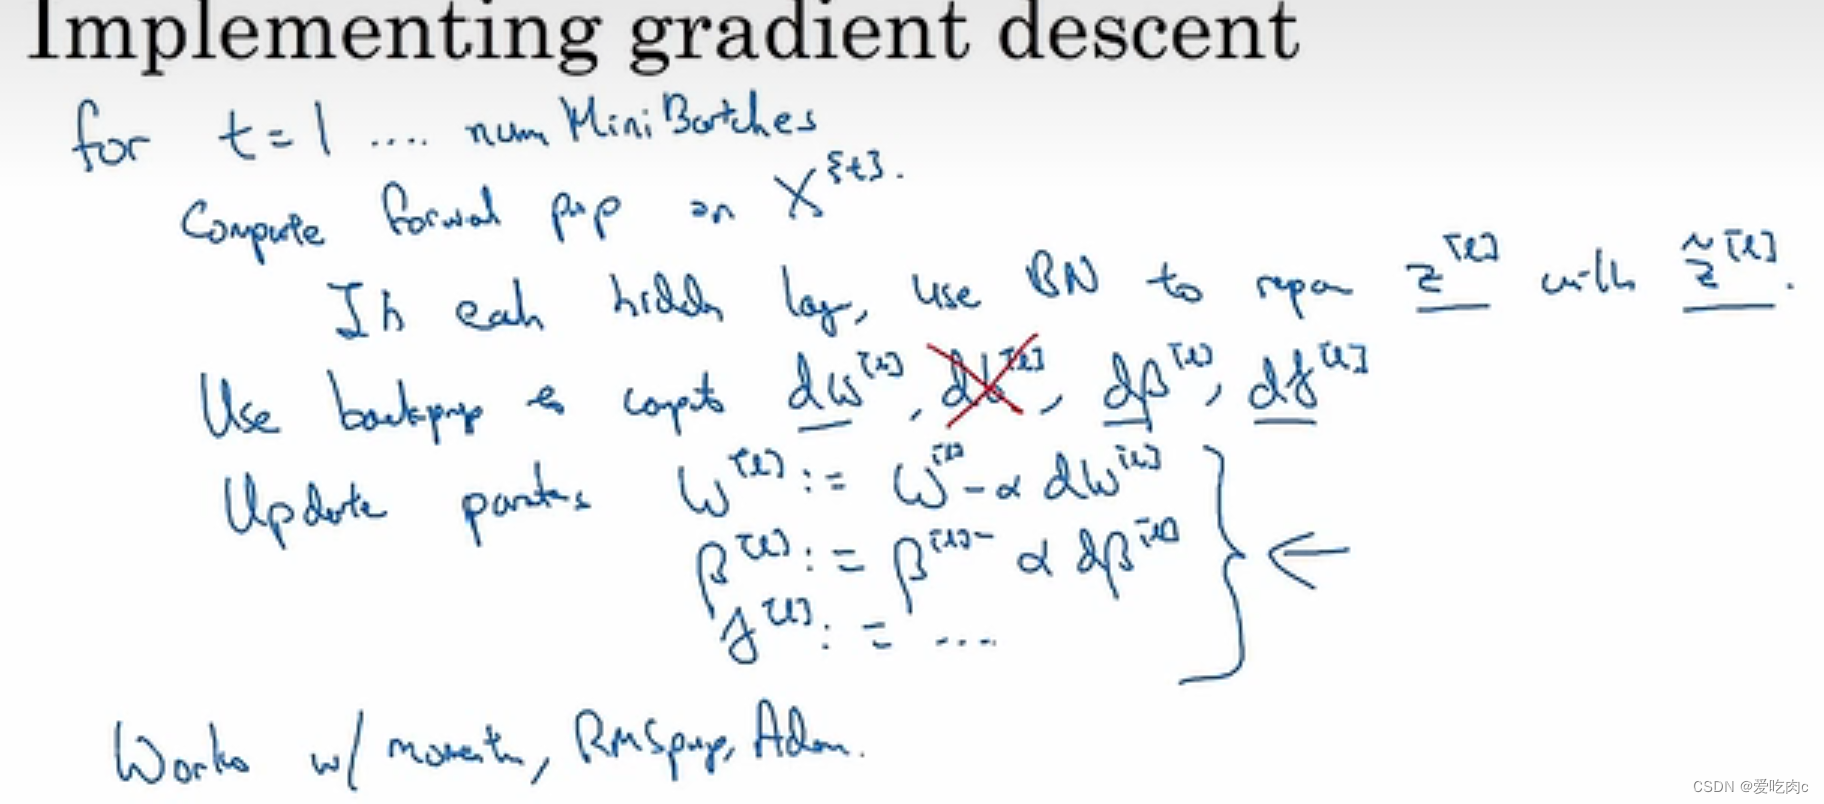 Implementing gradient descent
for t=1 .... num MiniBatches
Compute forward prop on X^{t}.
In each hidden layer, use BN to replace z^[l] with z̃^[l].
Use backprop to compute dw^[l], db^[l], dβ^[l], dγ^[l]
Update parameters w^[l] := w^[l] - α dw^[l]
β^[l] := β^[l] - α dβ^[l]
γ^[l] := ...
Works w/ momentum, RMSprop, Adam.
CSDN @爱吃肉c